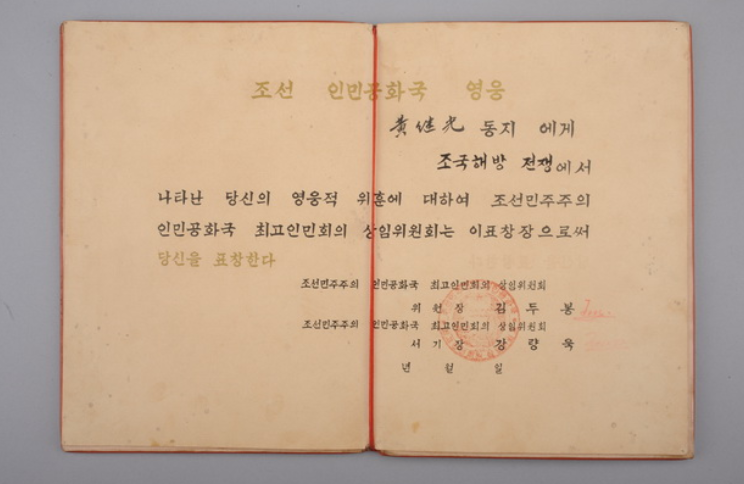 조선 인민공화국 영웅
黃继光 동지 에게
조국해방 전쟁에서
나타난 당신의 영웅적 위훈에 대하여 조선민주주의
인민공화국 최고인민회의 상임위원회는 이표창장으로써
당신을 표창한다
조선민주주의 인민공화국 최고인민회의 상임위원회
위원장 김두봉
조선민주주의 인민공화국 최고인민회의 상임위원회
서기장 강량욱
년 월 일